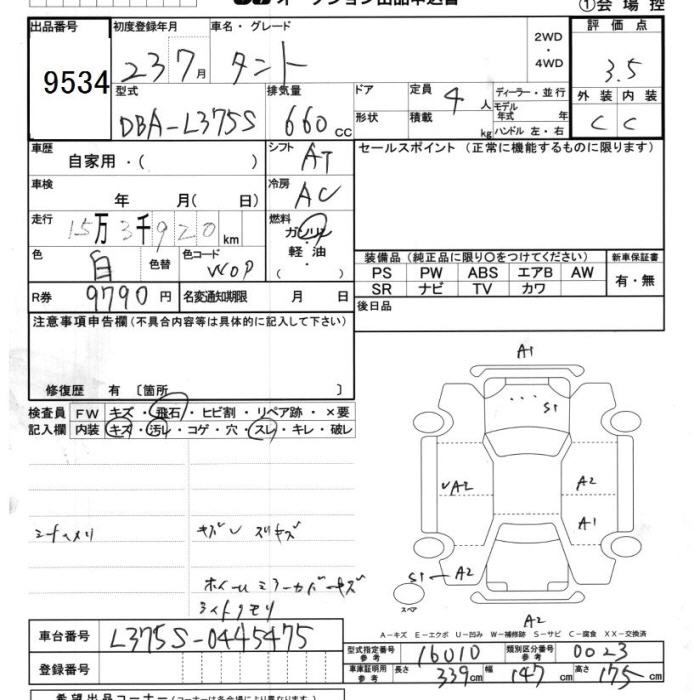 オークション出品申込書
①会場控
出品番号 初度登録年月 車名・グレード 評価点
9534 23 7月 タント 2WD・4WD 3.5
型式 排気量 ドア 定員 4人 ディーラー・並行 外装 内装
DBA-L375S 660cc 形状 積載 kg モデル年式 年 ハンドル 左・右 C C
車歴 自家用・( ) シフト AT セールスポイント(正常に機能するものに限ります)
車検 年 月( 日) 冷房 AC
走行 15万3千920km 燃料 ガソリン・軽油・( )
色 白 色替 色コード W09 装備品(純正品に限り○をつけてください) 新車保証書
PS PW ABS エアB AW 有・無
SR ナビ TV カワ
R券 9790円 名変通知期限 月 日 後日品
注意事項申告欄(不具合内容等は具体的に記入して下さい)
修復歴 有 〔箇所 〕
検査員記入欄 FW キズ・飛石・ヒビ割・リペア跡・×要
内装 キズ・汚レ・コゲ・穴・スレ・キレ・破レ
A1
S1
A2 A2
A1
S1 A2
スペア
A2
キズ スリキズ
A-キズ E-エクボ U-凹み W-補修跡 S-サビ C-腐食 XX-交換済
車台番号 L375S-0445475
型式指定番号 参考 16010 類別区分番号 参考 0023
登録番号 車庫証明用 参考 長さ 339cm 幅 147cm 高さ 175cm
希望出品コーナー(コーナーは各会場により異なります)